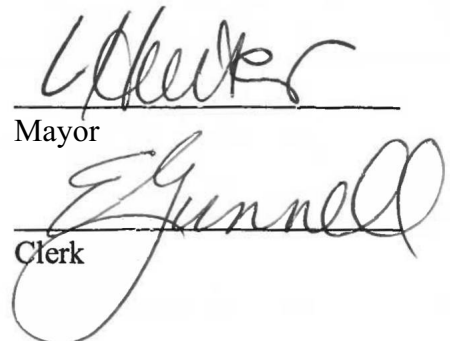 Mayor
E Gunnell
Clerk